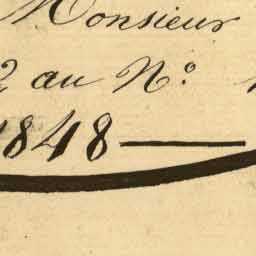 Monsieur
2 au N.º
1848 —